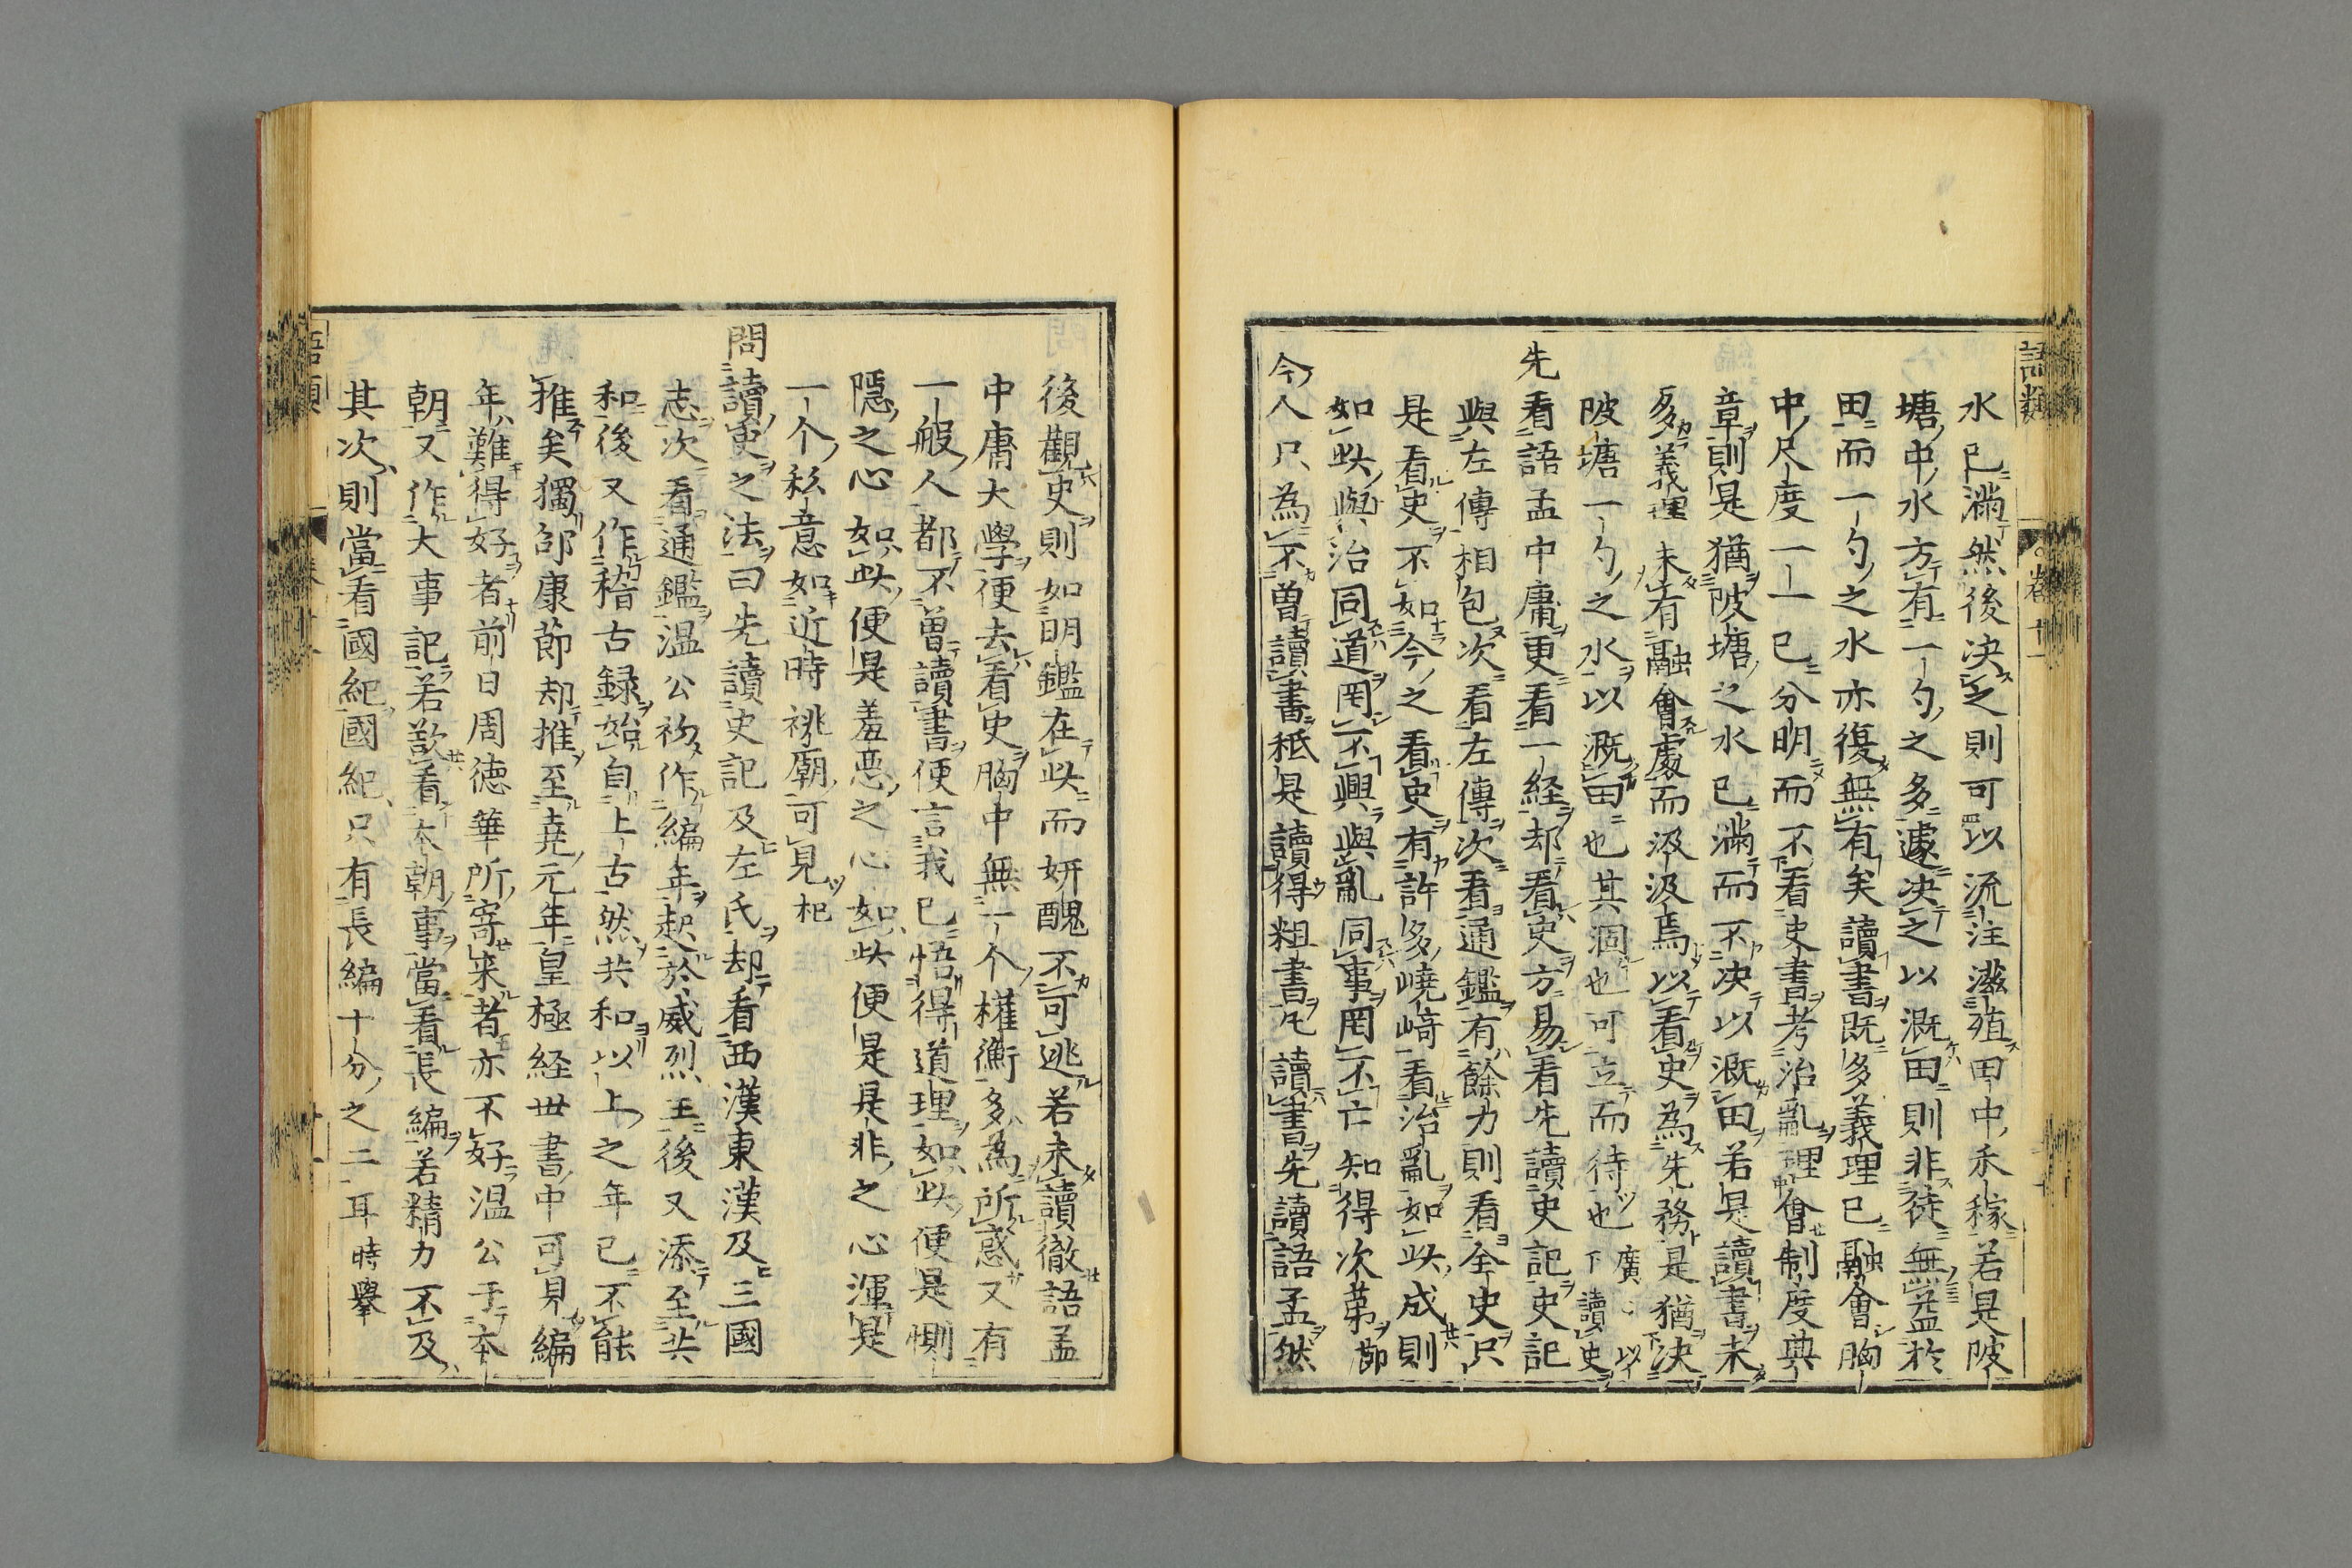 語類
卷十一
水已滿然後決之則可以流注滋殖田中禾稼若是陂
塘中水方有一勺之多遽决之以溉田則非徒無益於
田而一勺之水亦復無有矣讀書既多義理已融會胸
中尺度一一已分明而不看史書考治亂理會制度典
章則是猶陂塘之水已滿而不决以溉田若是讀書未
多義理未有融會處而汲汲焉以看史為先務是猶决
陂塘一勺之水以溉田也其涸也可立而待也廣〻以下讀史
先看語孟中庸更看一経却看史方易看先讀史記史記
與左傳相包次看左傳次看通鑑有餘力則看全史只
是看史不如今之看史有許多嶢﨑看治亂如此成則
如此與治同道罔不興與亂同事罔不亡知得次第節
今人只為不曽讀書秪是讀得粗書凡讀書先讀語孟然
後觀史則如明鑑在此而妍醜不可逃若未讀徹語孟
中庸大學便去看史胸中無一个權衡多為所惑又有
一般人都不曽讀書便言我已悟得道理如此便是惻
隱之心如此便是羞惡之心如此便是是非之心渾是
一个私意如近時祧廟可見杞
問讀史之法曰先讀史記及左氏却看西漢東漢及三國
志次看通鑑温公初作編年起於威烈王後又添至共
和後又作稽古録始自上古然共和以上之年已不能
推矣獨邵康節却推至堯元年皇極経世書中可見編
年難得好者前日周德華所寄来者亦不好温公于本
朝又作大事記若欲看本朝事當看長編若精力不及
其次則當看國紀國紀只有長編十分之二耳時舉
語類